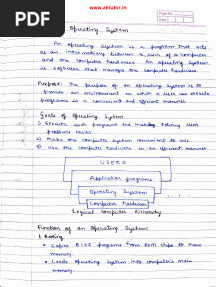 www.aktutor.in
PDF
Page No.
Date
Operating System
An operating system is a program that acts
as an intermediary between a user of a computer
and the computer hardware. An operating system
is software that manages the computer hardware.
Purpose: The purpose of an operating system is to
provide an environment in which a user can execute
programs in a convenient and efficient manner.
Goals of Operating System
1) Execute user programs and making solving user
problems easier.
2) Make the computer system convenient to use.
3) Use the computer hardware in an efficient manner.
USERS
Application programs
Operating System
Computer hardware
Logical computer hierarchy
Function of an Operating System
1. Booting
Copies BIOS programs from ROM chips to main
memory.
Loads operating system into computer's main
memory.